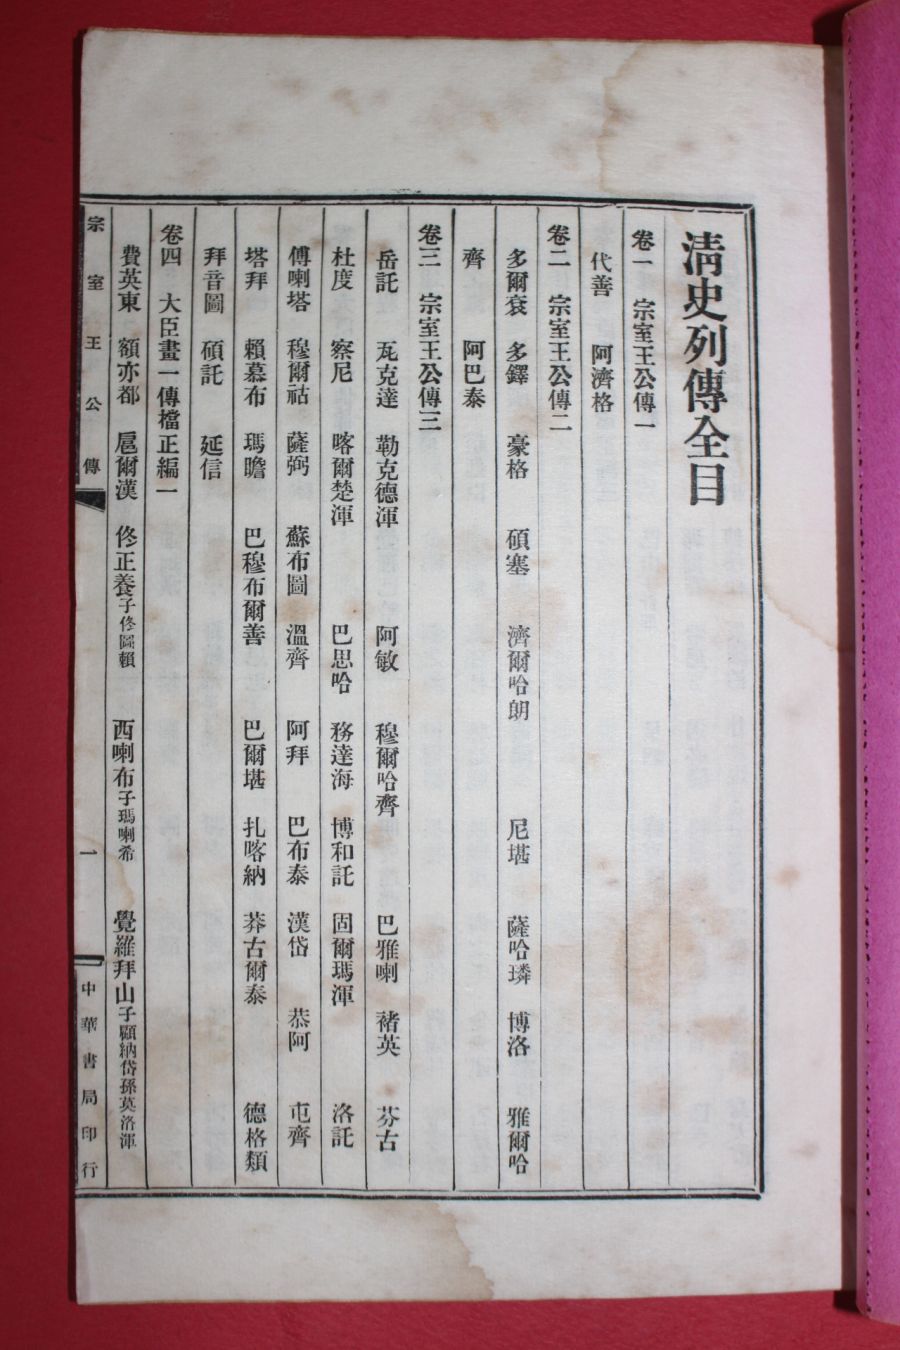 清史列傳全目
卷一　宗室王公傳一
代善　阿濟格
卷二　宗室王公傳二
多爾袞　多鐸　豪格　碩塞　濟爾哈朗　尼堪　薩哈璘　博洛　雅爾哈
齊　阿巴泰
卷三　宗室王公傳三
岳託　瓦克達　勒克德渾　阿敏　穆爾哈齊　巴雅喇　褚英　芬古
杜度　察尼　喀爾楚渾　巴思哈　務達海　博和託　固爾瑪渾　洛託
傅喇塔　穆爾祜　薩弼　蘇布圖　溫齊　阿拜　巴布泰　漢岱　恭阿　屯齊
塔拜　賴慕布　瑪瞻　巴穆布爾善　巴爾堪　扎喀納　莽古爾泰　德格類
拜音圖　碩託　延信
卷四　大臣畫一傳檔正編一
費英東　額亦都　扈爾漢　佟正養子佟圖賴　西喇布子瑪喇希　覺羅拜山子顧納岱孫莫洛渾
宗室王公傳
一
中華書局印行